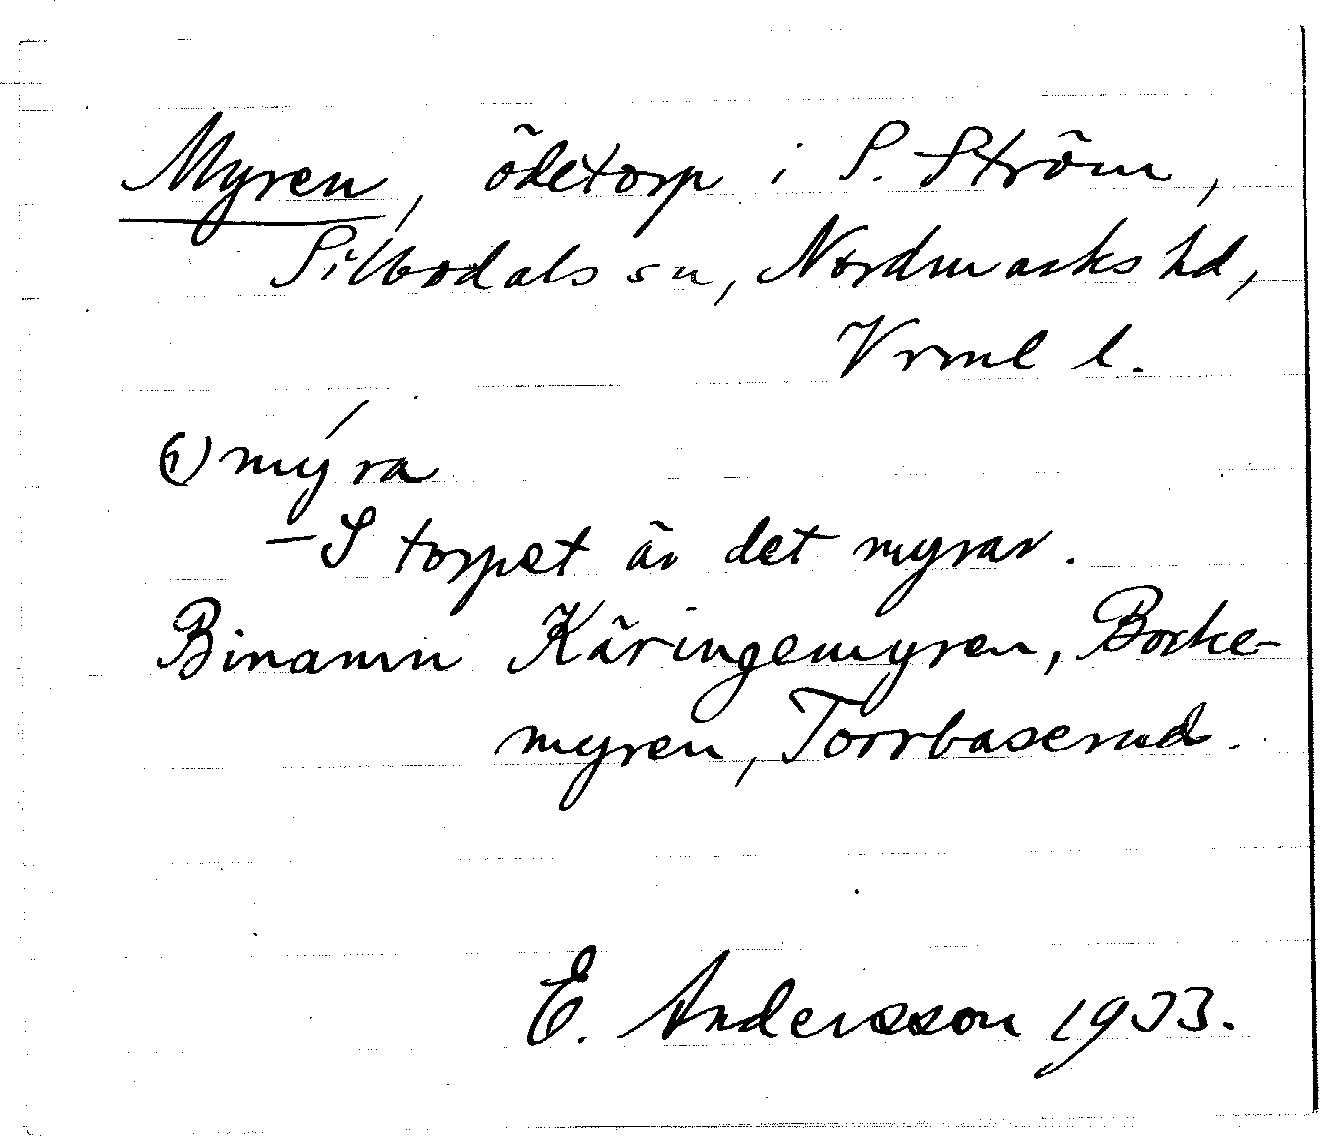 Myren, ödetorp i S. Ström,
Silbodals sn, Nordmarks hd,
Vrml l.
mýra
- I torpet är det myrar.
Binamn Käringemyren, Bocke-
myren, Torrbaserud.
E. Andersson 1933.